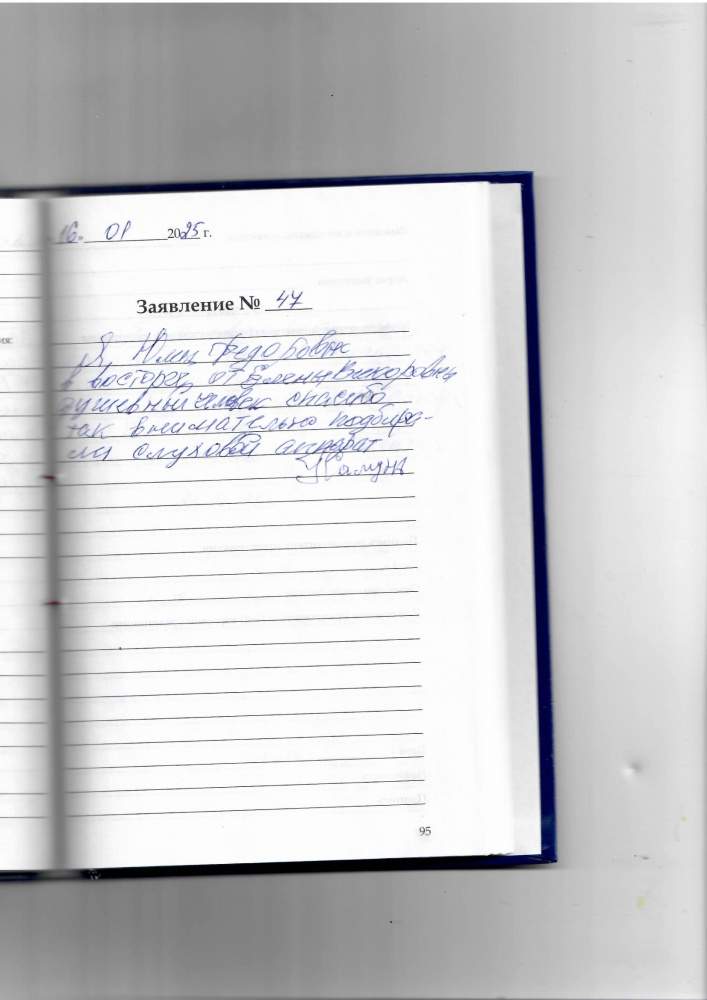 16 01 2025 г.
Заявление № 47
Я Юлия Федоровна
в восторге, от Елены Викторовны
душевный человек спасибо
так внимательно подбира-
ли слуховой аппарат
95